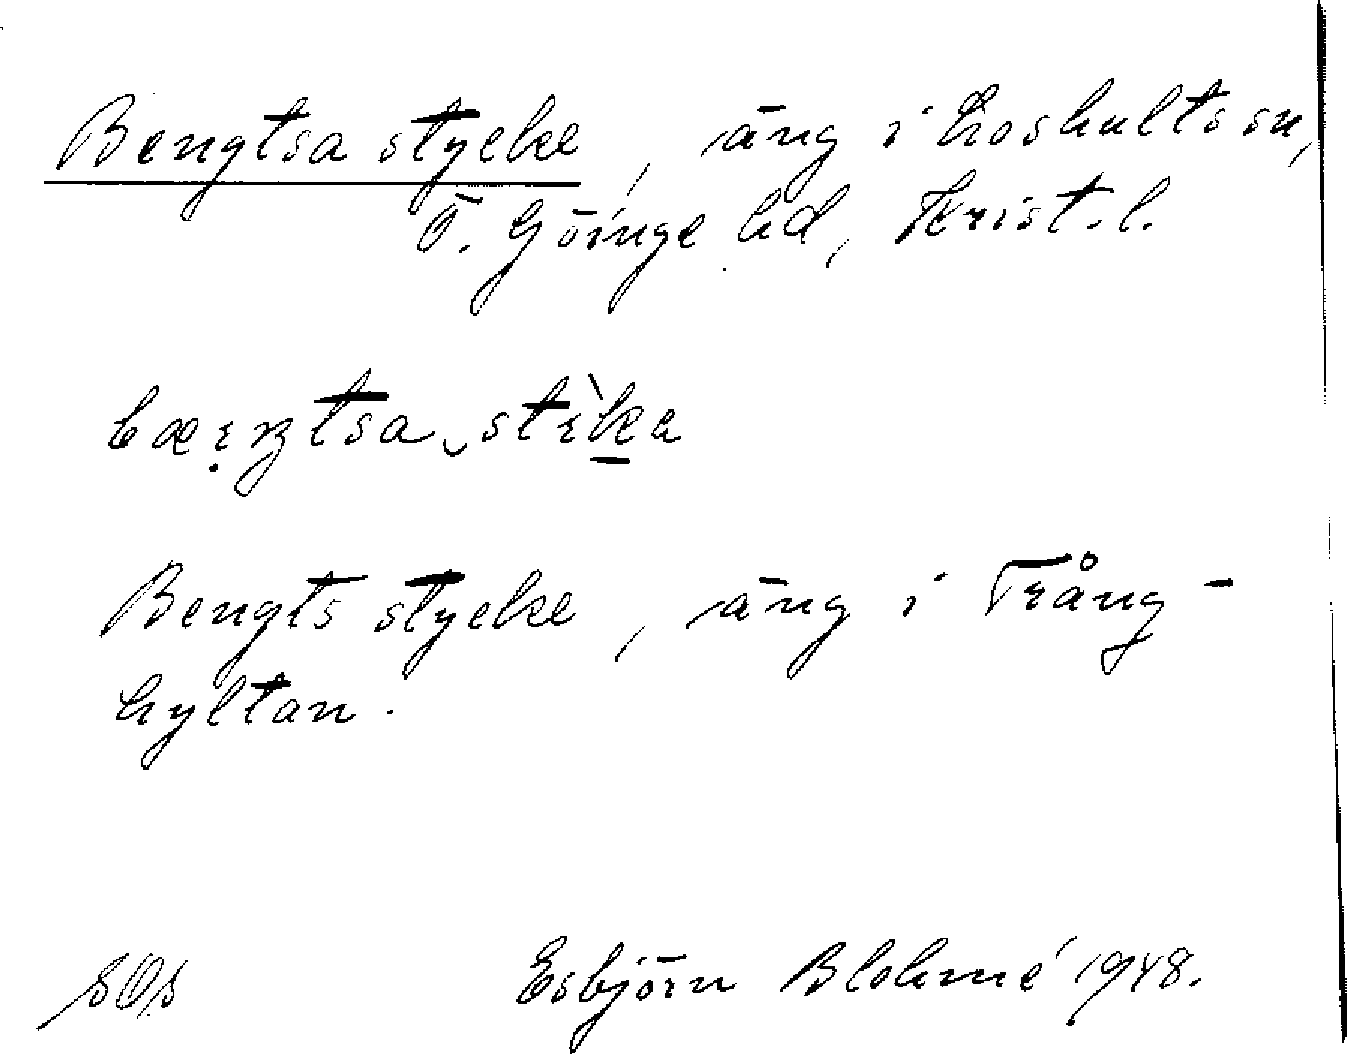 Bengtsa stycke, äng i Loshults sn,
Ö. Göinge hd, Krist. l.
Bengts stycke, äng i Trång-
hyltan.
SOS Esbjörn Blohmé 1948.